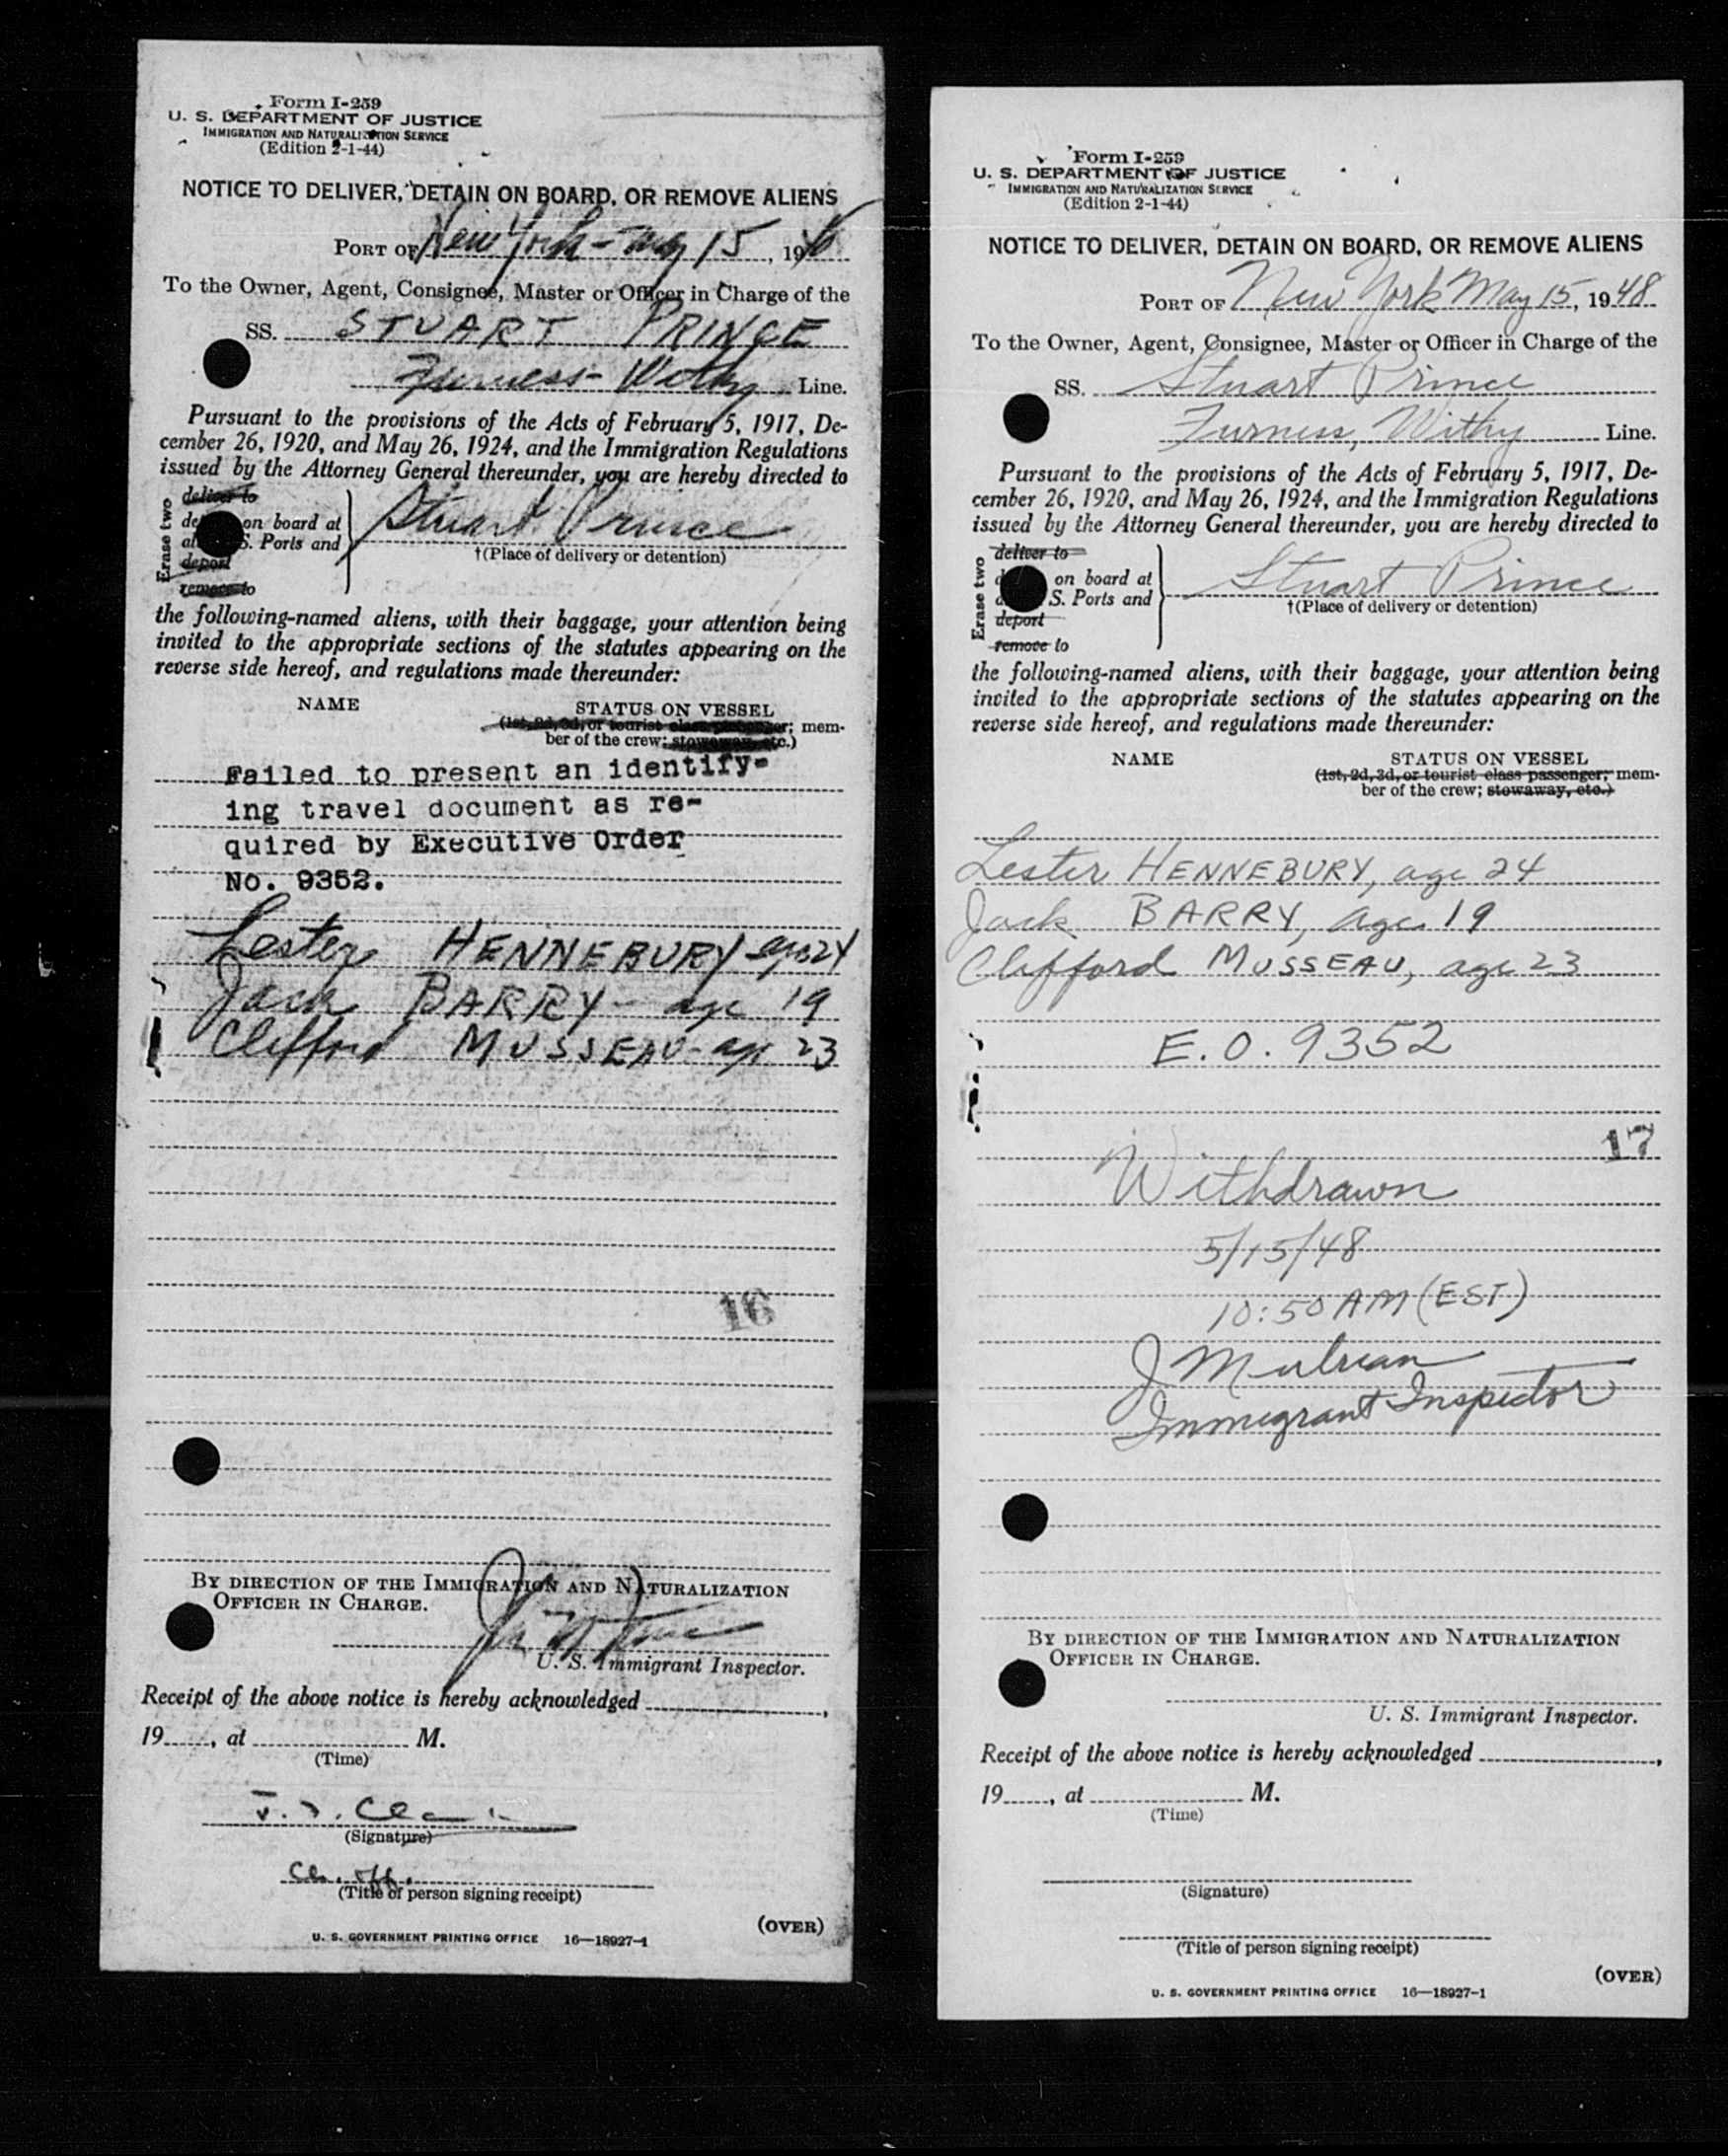 Form I-259
U. S. DEPARTMENT OF JUSTICE
IMMIGRATION AND NATURALIZATION SERVICE
(Edition 2-1-44)
NOTICE TO DELIVER, DETAIN ON BOARD, OR REMOVE ALIENS
PORT OF New York - May 15, 19
To the Owner, Agent, Consignee, Master or Officer in Charge of the
SS. STUART PRINCE
Furness-Withy Line.
Pursuant to the provisions of the Acts of February 5, 1917, De-
cember 26, 1920, and May 26, 1924, and the Immigration Regulations
issued by the Attorney General thereunder, you are hereby directed to
Erase two
deliver to
on board at
S. Ports and
deport
remove to
Stuart Prince
†(Place of delivery or detention)
the following-named aliens, with their baggage, your attention being
invited to the appropriate sections of the statutes appearing on the
reverse side hereof, and regulations made thereunder:
NAME STATUS ON VESSEL
(1st, 2d, 3d, or tourist class passenger; mem-
ber of the crew; stowaway, etc.)
Failed to present an identify-
ing travel document as re-
quired by Executive Order
No. 9352.
Lester HENNEBURY age 24
Jack BARRY - age 19
Clifford MUSSEAU - age 23
16
BY DIRECTION OF THE IMMIGRATION AND NATURALIZATION
OFFICER IN CHARGE.
U. S. Immigrant Inspector.
Receipt of the above notice is hereby acknowledged
19 , at M.
(Time)
(Signature)
Ch. Off.
(Title of person signing receipt)
(OVER)
U. S. GOVERNMENT PRINTING OFFICE 16—18927-1
Form I-259
U. S. DEPARTMENT OF JUSTICE
IMMIGRATION AND NATURALIZATION SERVICE
(Edition 2-1-44)
NOTICE TO DELIVER, DETAIN ON BOARD, OR REMOVE ALIENS
PORT OF New York May 15, 1948
To the Owner, Agent, Consignee, Master or Officer in Charge of the
SS. Stuart Prince
Furness, Withy Line.
Pursuant to the provisions of the Acts of February 5, 1917, De-
cember 26, 1920, and May 26, 1924, and the Immigration Regulations
issued by the Attorney General thereunder, you are hereby directed to
Erase two
deliver to
on board at
S. Ports and
deport
remove to
Stuart Prince
†(Place of delivery or detention)
the following-named aliens, with their baggage, your attention being
invited to the appropriate sections of the statutes appearing on the
reverse side hereof, and regulations made thereunder:
NAME STATUS ON VESSEL
(1st, 2d, 3d, or tourist class passenger; mem-
ber of the crew; stowaway, etc.)
Lester HENNEBURY, age 24
Jack BARRY, age 19
Clifford MUSSEAU, age 23
E.O. 9352
17
Withdrawn
5/15/48
10:50 AM (EST)
J Mulrean
Immigrant Inspector
BY DIRECTION OF THE IMMIGRATION AND NATURALIZATION
OFFICER IN CHARGE.
U. S. Immigrant Inspector.
Receipt of the above notice is hereby acknowledged
19 , at M.
(Time)
(Signature)
(Title of person signing receipt)
(OVER)
U. S. GOVERNMENT PRINTING OFFICE 16—18927-1